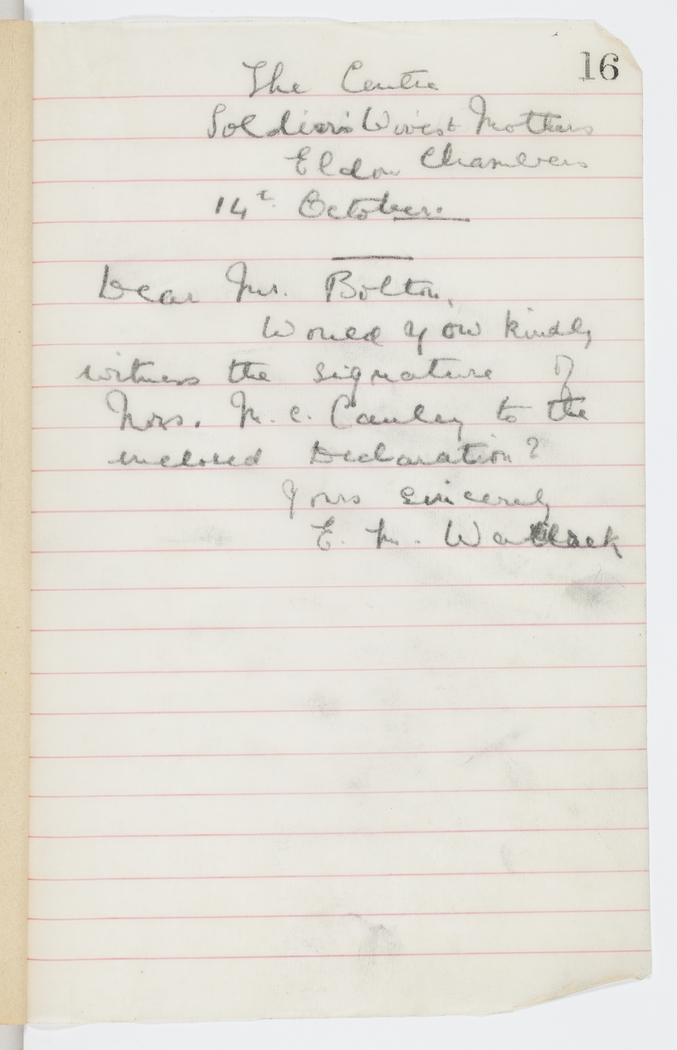 16
The Centre
Soldiers Wives & Mothers
Eldon Chambers
14t October.
Dear Mr. Bolton,
Would you kindly
witness the signature of
Mrs. M. c. Cauley to the
enclosed Declaration?
Yours sincerely
E. M. Wallack